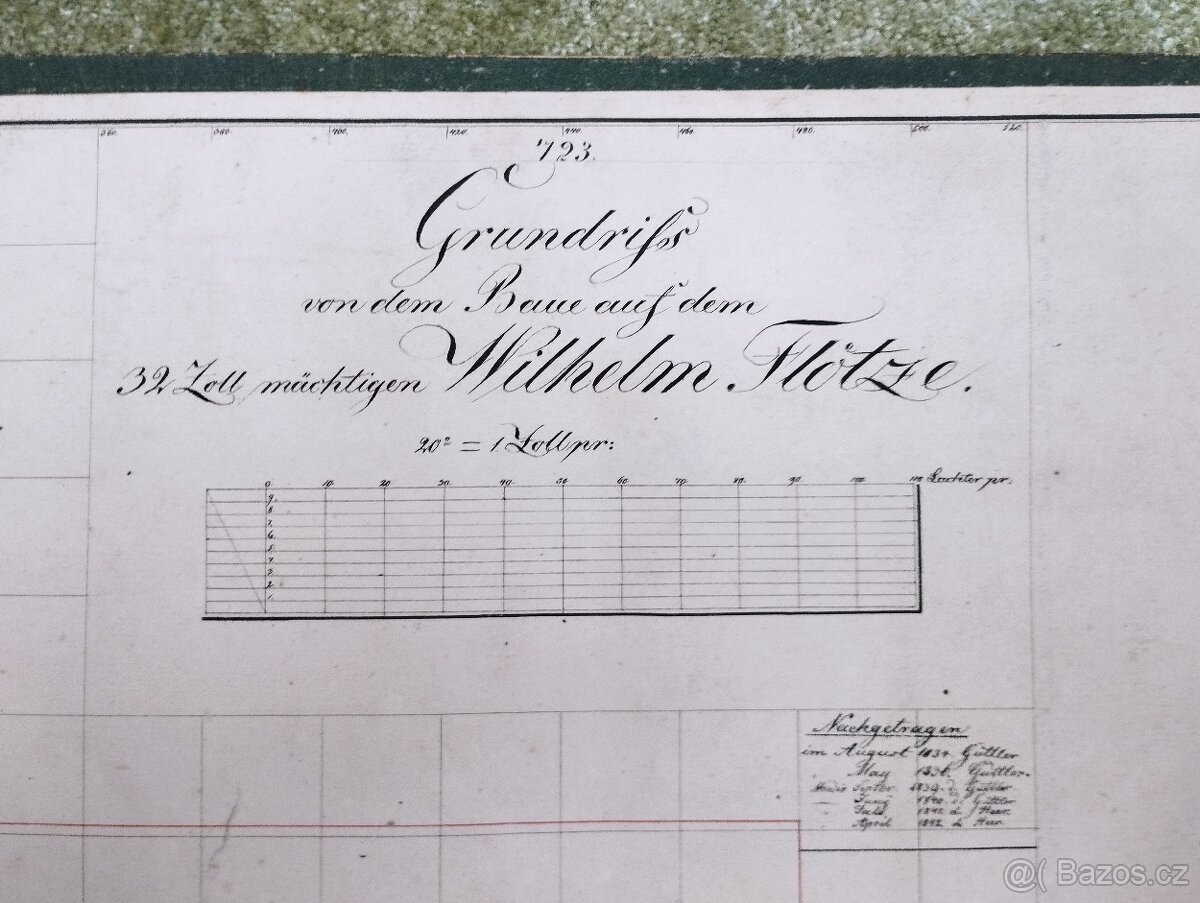 360. 380. 400. 420. 440. 460. 480. 500. 520.
723.
Grundriſs
von dem Baue auf dem
32 Zoll mächtigen Wilhelm Flötze.
20° = 1 Zoll pr:
0 10. 20. 30. 40. 50. 60. 70. 80. 90. 100. 110 Lachter pr.
9.
8.
7.
6.
5.
4.
3.
2.
1.
Nachgetragen
im August Güttler
May Güttler
Septbr. 1839. d. Güttler
Juny 1840. d. Güttler
d. Heer.
April 1842 d. Heer.
@( Bazos.cz